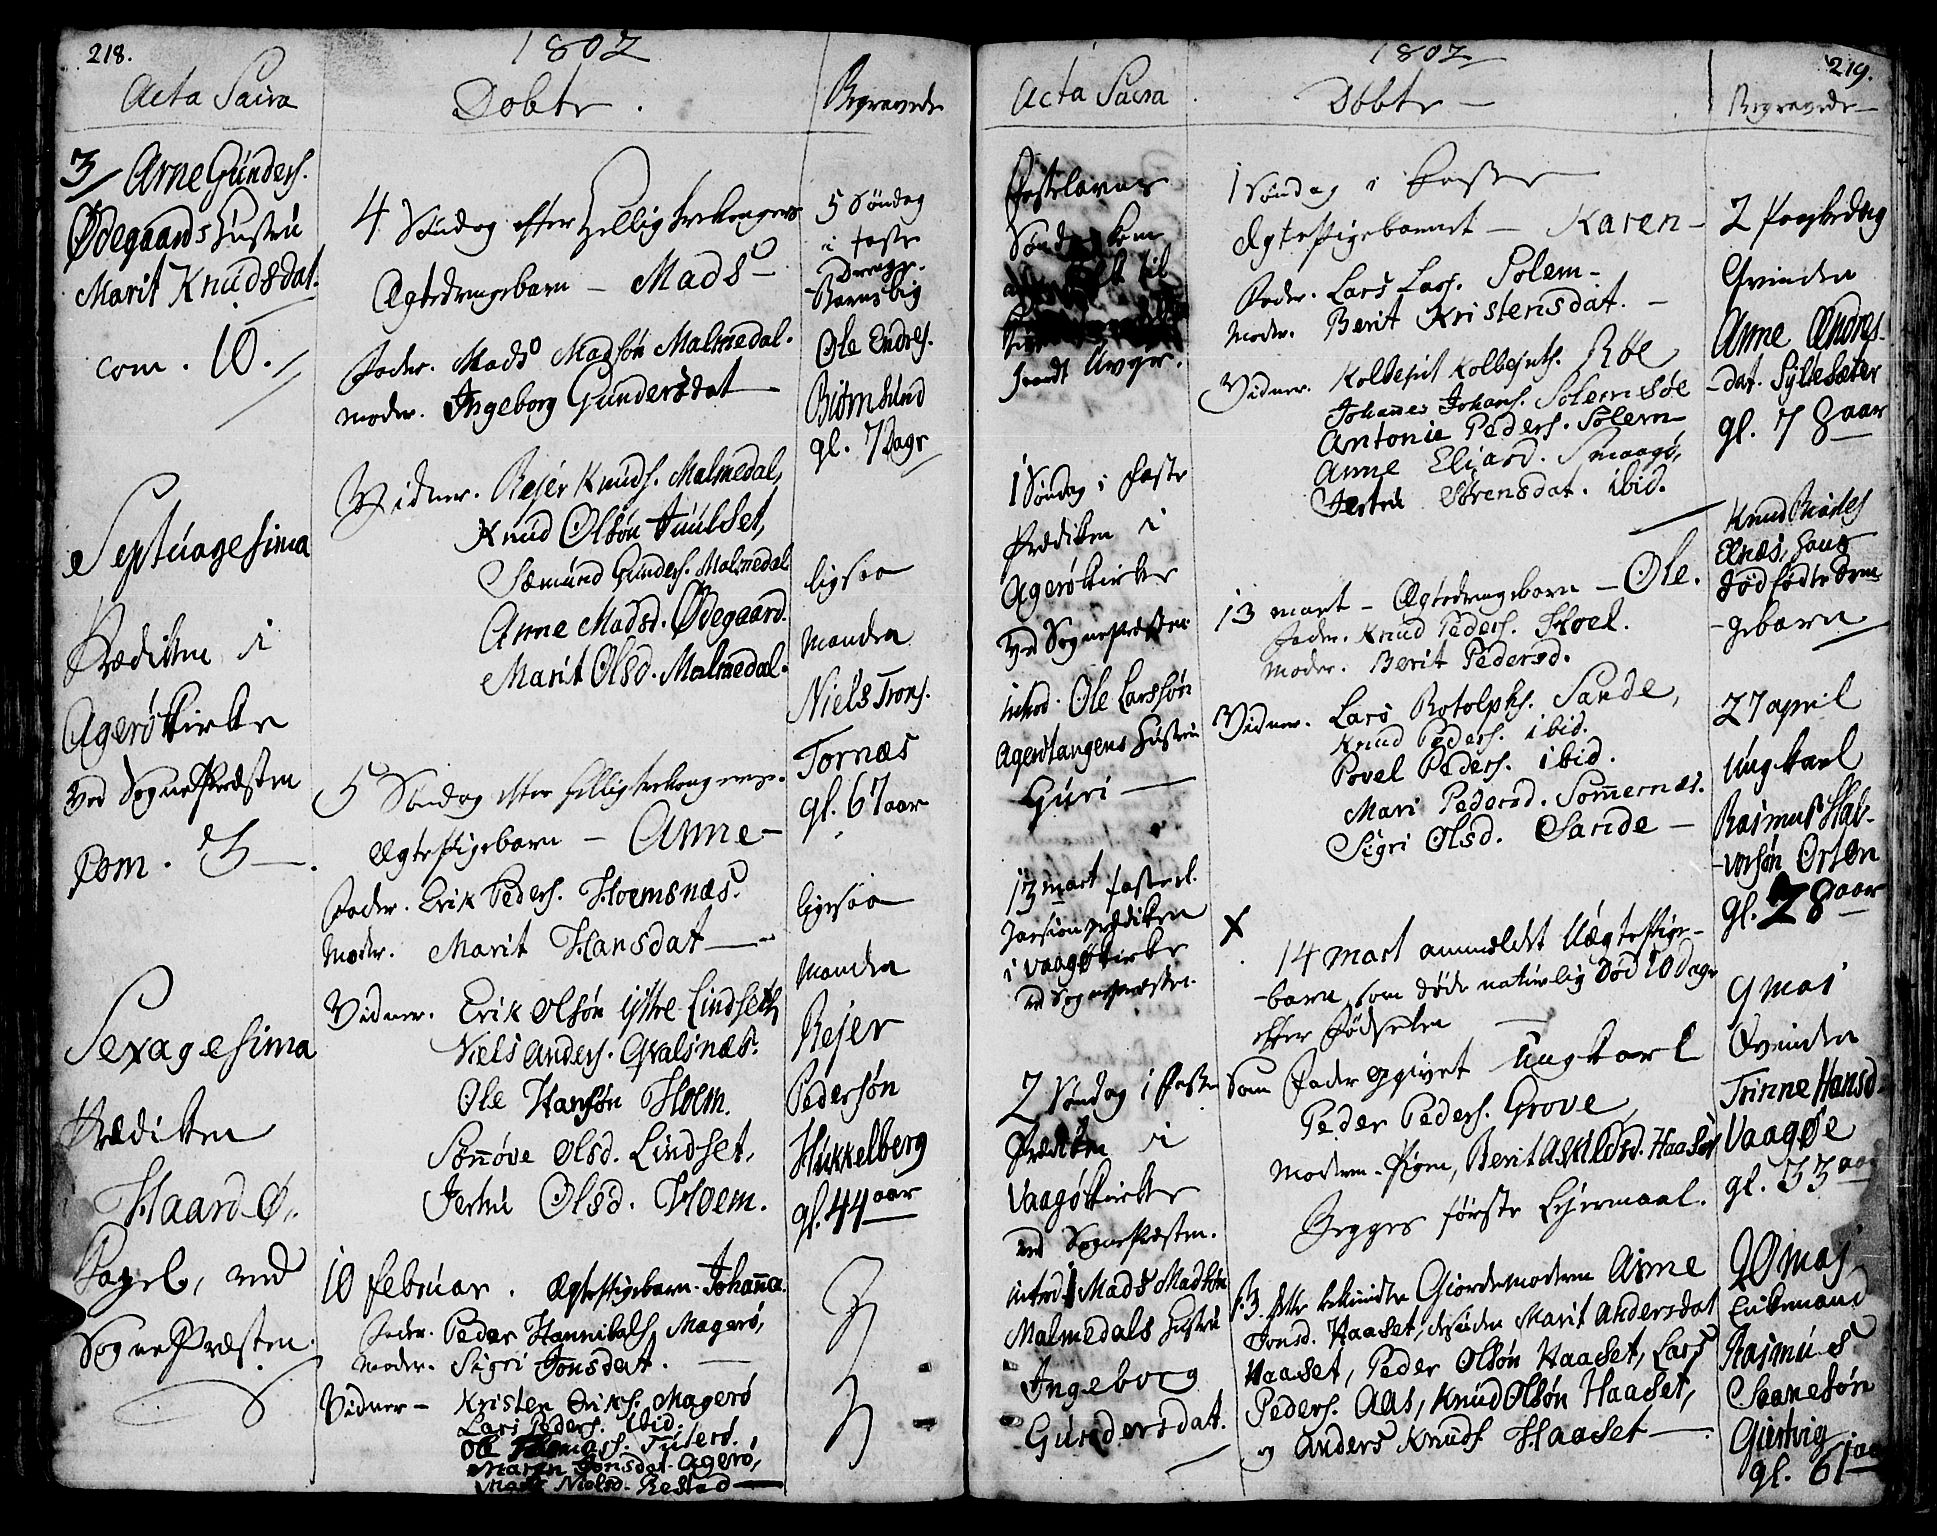 218.
1802
Acta Sacra
Døbte.
Begravede
3/ Arne Gunders.
Ødegaards Hustru
Marit Knudsdat.
com. 10.
Septuagesima
Prædiken i
Agerø Kirke
ved SognePræsten
Com. 3
Sexagesima
Prædiken
Haard Ø.
Capel, ved
SognePræsten.
4 Søndag efter Hellig trekonger
Ægtedrengebarn - Mads
Fader. Mads Madsøn Malmedal.
Moder. Ingeborg Gundersdat
Vidner. Rejer Knuds. Malmedal,
Knud Olsøn Juulset,
Sæmund Gunders. Malmedal
Anne Madsd. Ødegaard.
Marit Olsd. Malmedal.
5 Søndag efter Helligtrekonger.
Ægtepigebarn - Anne
Fader. Erik Peders. Hoemsnæs.
Moder. Marit Hansdat
Vidner. Erik Olsøn ystre Lindset,
Niels Anders. Qvalsnæs.
Ole Hansøn Hoem.
Sønnøve Olsd. Lindset,
Jertrul Olsd. Hoem.
10 Februar. Ægtepigebarn. Johanna.
Fader. Peder Hannibals. Magerø,
Moder. Sigri Jonsdat.
Vidner - Kristen Eriks. Magerø
Lars Peders. ibid.
Ole Thomas.
Maren Jonsdat. Agerø,
Nielsd. Restad
5 Søndag
i faste
Drenge-
Barns Lig
Ole Endres.
Biørnsund
gl. 7 Dage
ligsaa
Manden
Niels Trons.
Tornæs
gl. 67 aar
ligesaa
Manden
Rejer
Pedersøn
Hukkelberg
gl. 44 aar
219.
1802
Acta Sacra
Døbte
Begravede
Fastelavns
Søndag kom
til
1 Søndag i Faste
Prædiken i
Agerø Kirke
ved SognePræsten
introd. Ole Larssøn
Agerøtangens Hustru
Guri
13 mart faste
prædiken
i Vaagø Kirke
ved Sognepræsten.
2 Søndag i Faste
Prædiken i
Vaagø Kirke
ved SognePræsten.
introd. Mads Madsøn
Malmedals Hustru
Ingeborg
Gundersdat.
1 Søndag i Faste
Ægtepigebarnet - Karen
Fader. Lars Lars. Solem
Moder. Berit Kristensdat.
Vidner. Kolbejnt Kolbejnts. Røe
Johannes Johans. Solemsøe
Antonie Peders. Solem
Anne Eliard. Smaagø,
Sørensdat. ibid.
13 mart - Ægtedrengebarn - Ole.
Fader. Knud Peders. Hoel.
Moder. Berit Pedersd.
Vidner. Lars Rotolphs. Sande,
Knud Peders. ibid.
Povel Peders. ibid.
Mari Pedersd. Sommernæs.
Sigri Olsd. Sande
X
14 mart anmeldet Uægtepige-
-barn, som døde naturlig død 10 dage
efter Fødselen
Som Fader opgivet Ungkarl
Peder Peders. Grove,
Moderen. Pigen, Berit Askildsd. Haaset
Begges første Lejermaal.
Giordemoderen Anne
Jonsd. Haaset, desuden Marit Andersdat
Haaset, Peder Olsøn Haaset, Lars
Peders. Aas, Knud Olsøn Haaset,
og Anders Knuds. Haaset
2 Paaskedag
Qvinden
Anne Andres-
-dat. Sylesæter
gl. 78 aar
Knud
Elnæs, hans
Dødfødte Dren-
-gebarn
27 april
Ungkarl
Rasmus Hal-
-vorsøn Orten
gl. 28 aar
9 maj
Qvinden
Trinne Hansd.
Vaagøe
gl. 33 aar
20 maj
Enkemand
Rasmus
Gientvig
gl. 61 aar